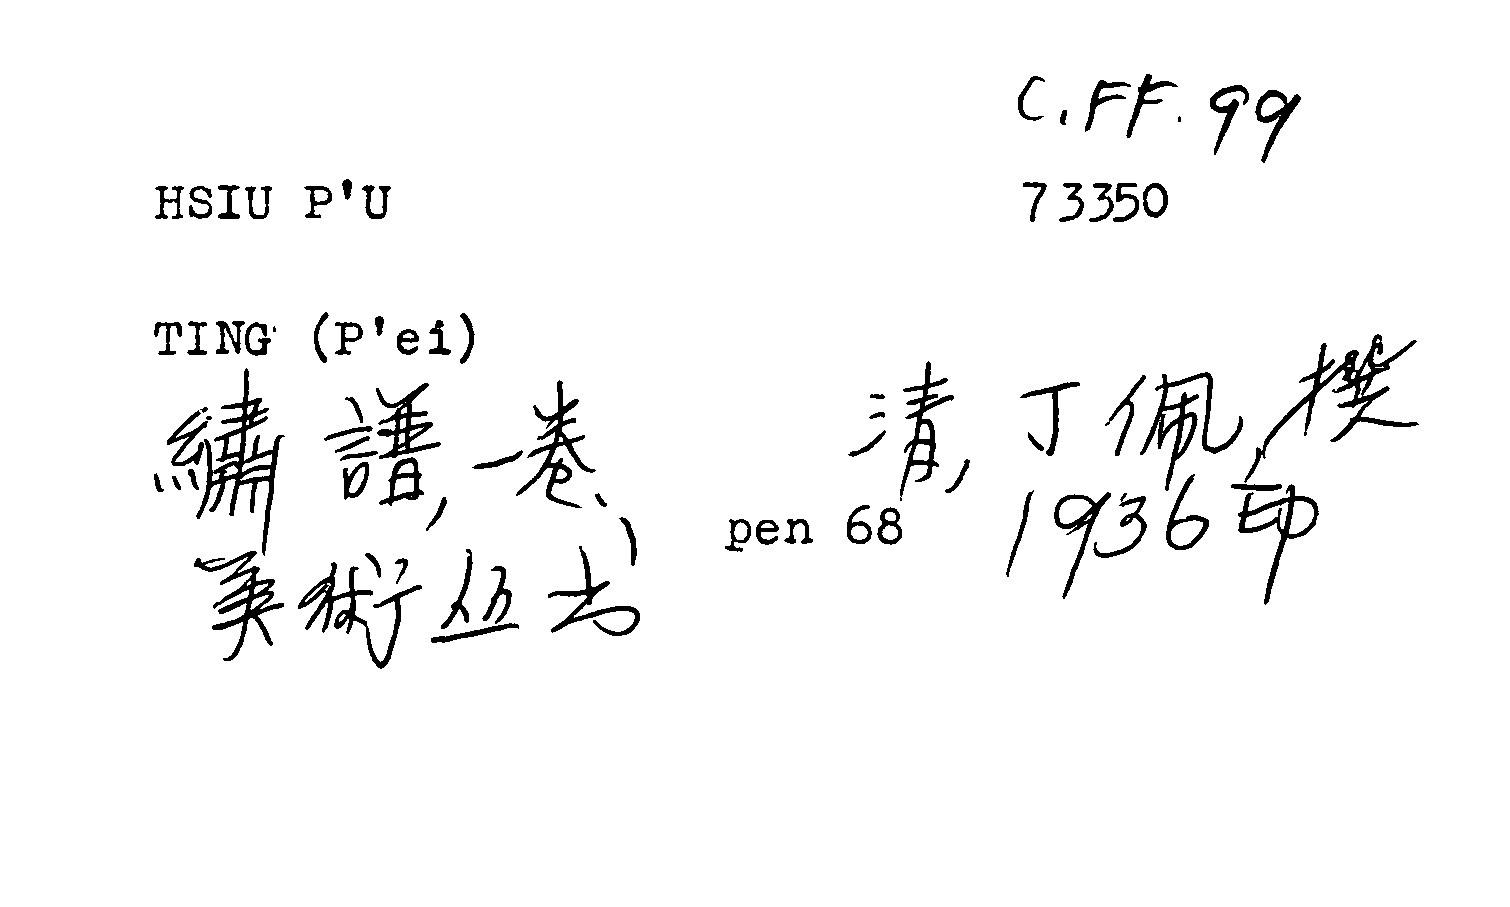 C.FF.99
HSIU P'U 73350
TING (P'ei)
繡譜,一卷、 清,丁佩,撰
pen 68 1936印
美術丛书